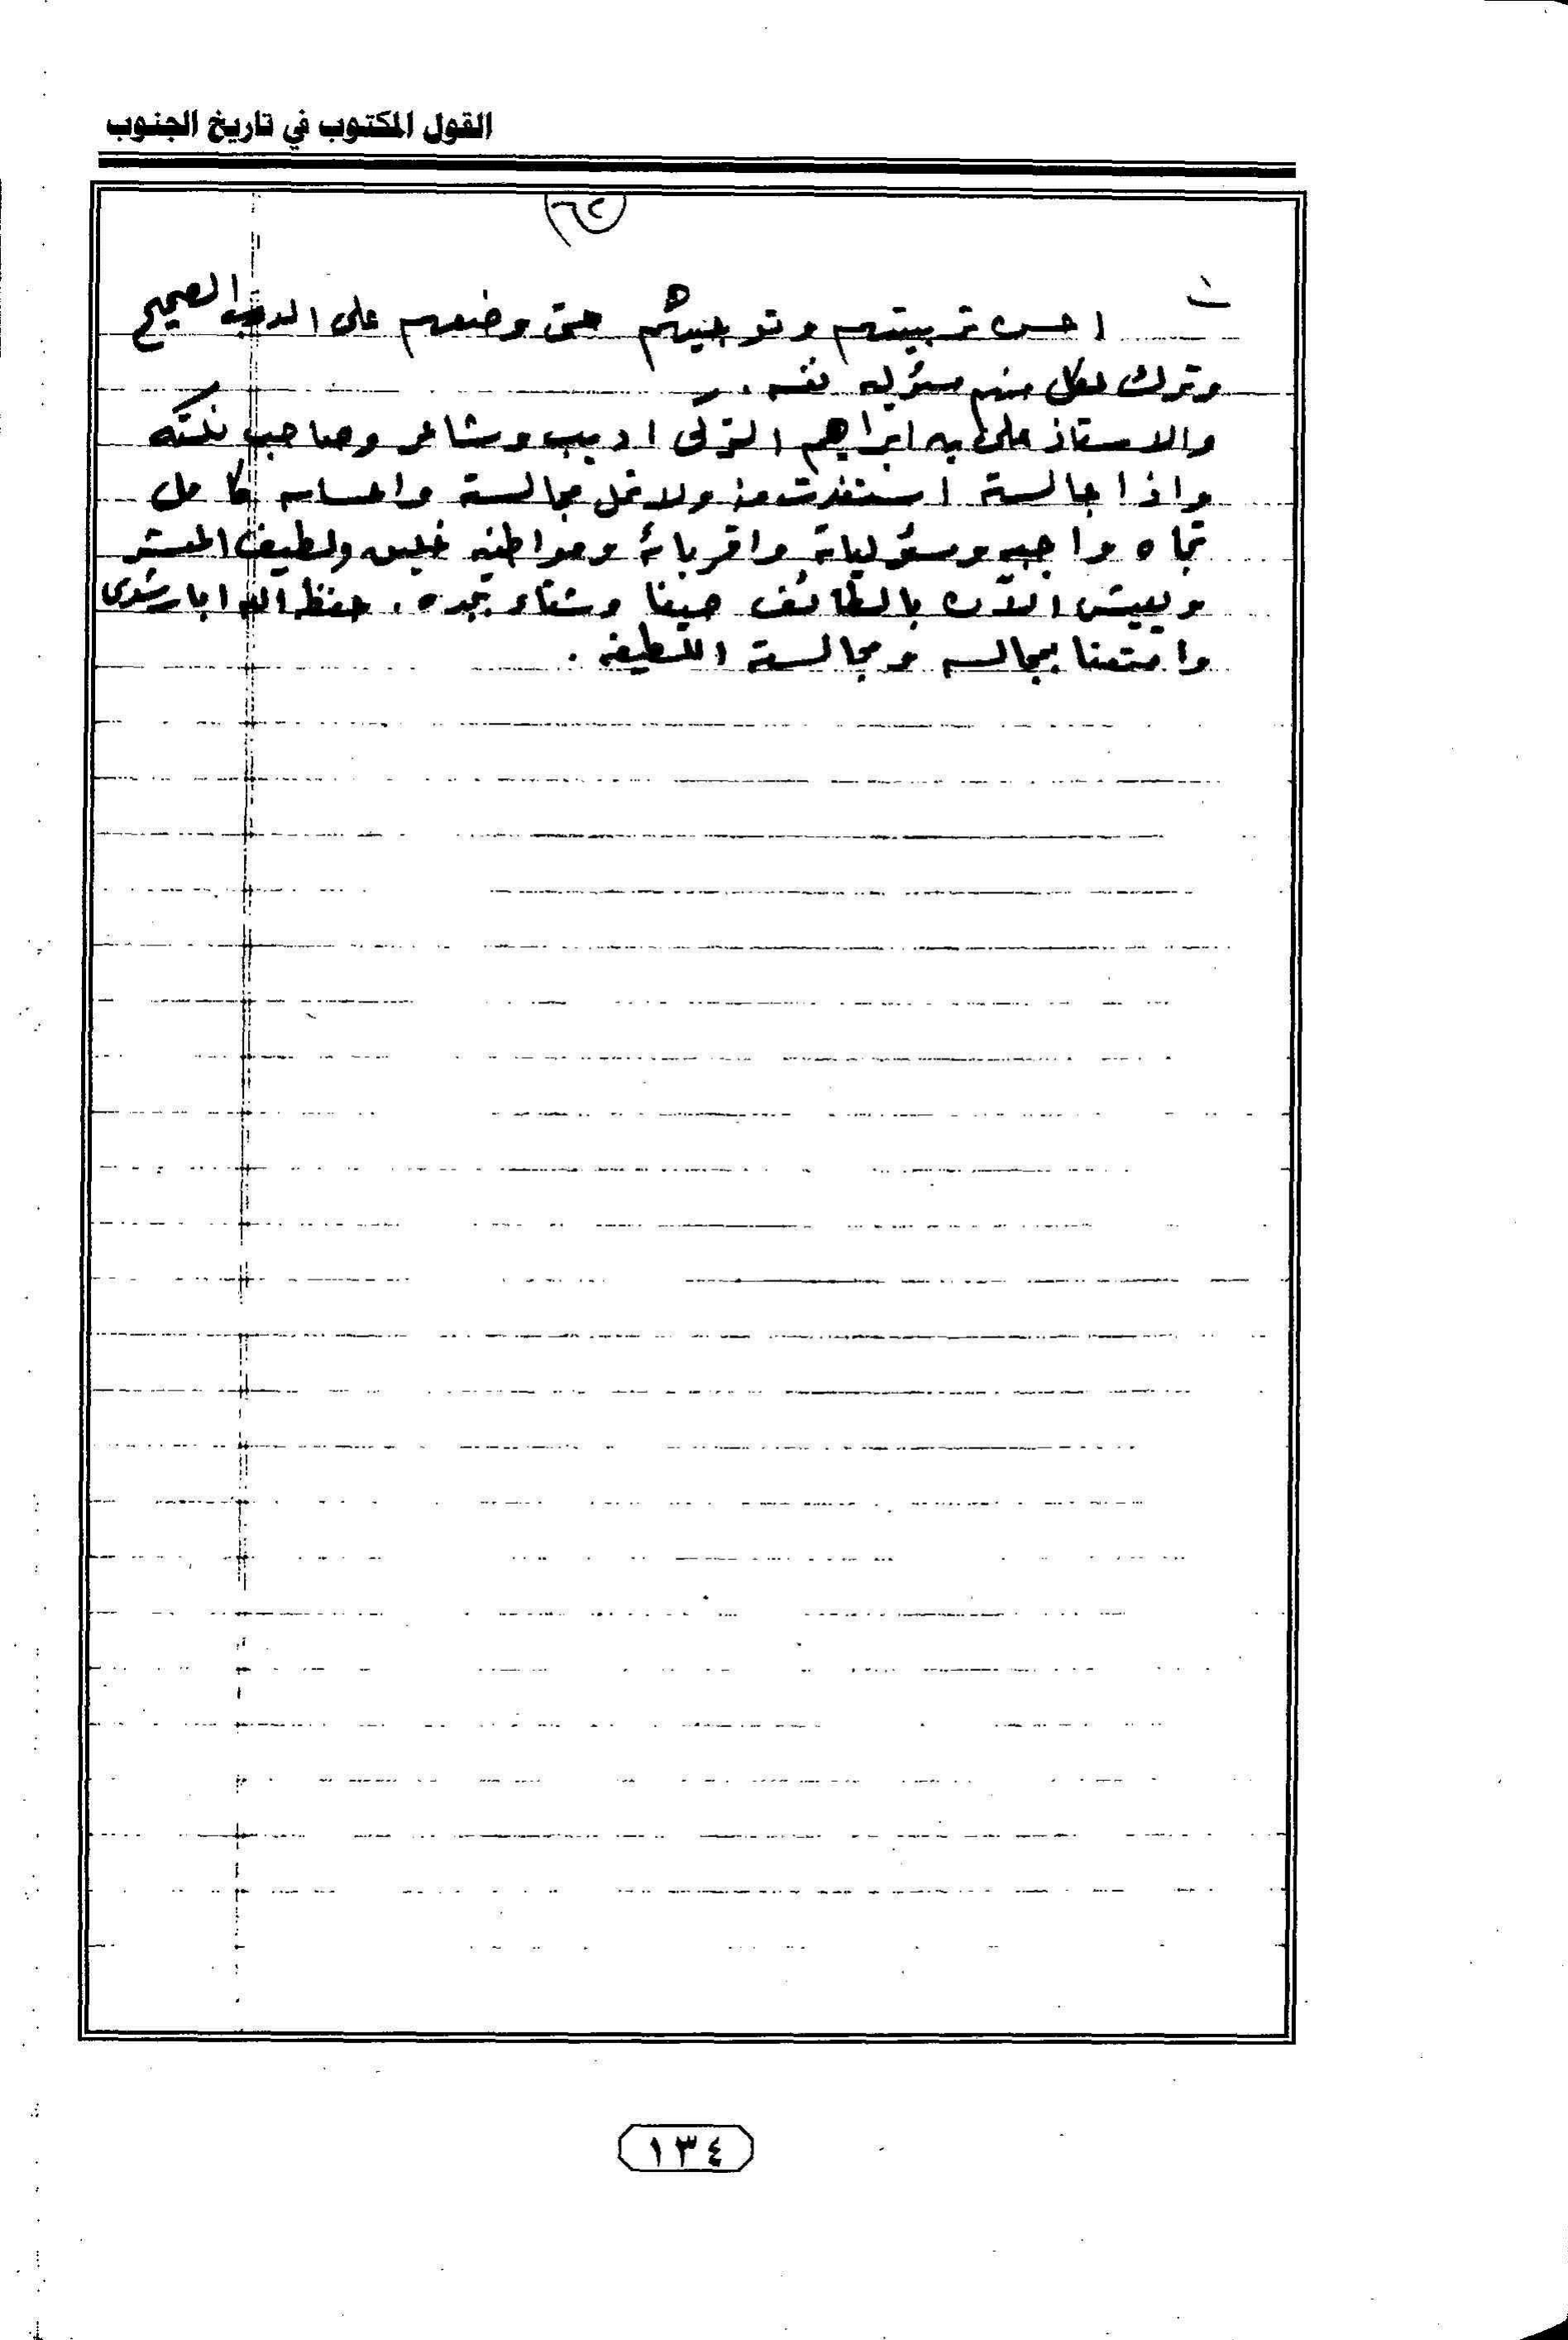 القول المكتوب في تاريخ الجنوب
٦٢
احسن تربيتهم وتوجيههم حتى وضعهم على الدرب الصحيح
وترك لكل منهم مسئولية نفسه .
والاستاذ علي بن ابراهيم التركي اديب وشاعر وصاحب نكته
واذا جالسته استفدت منه ولا تمل مجالسته واحساسه كامل
تجاه واجبه ومسؤلياته واقربائه ومواطنيه خليق ولطيف المعشر
ويعيش الآن بالطائف صيفا وشتاء بجده . حفظ الله ابا رشدى
وامتعنا بمجالسه ومجالسته اللطيفه .
١٣٤